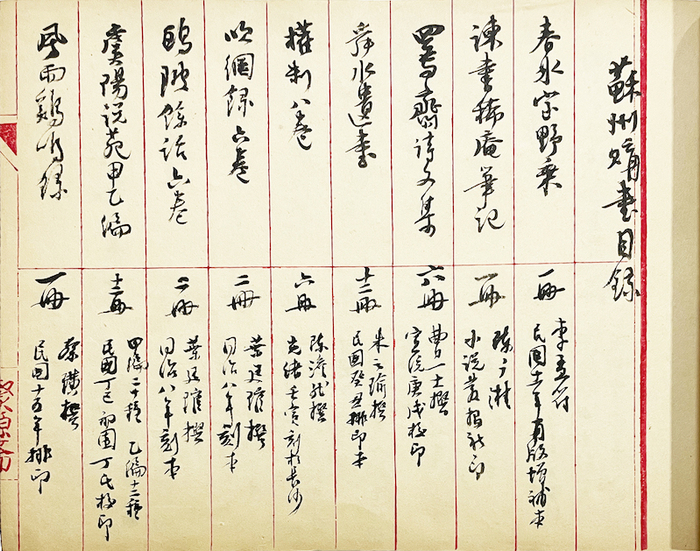 蘇州購書目錄
春氷室野乘
一冊
李孟符
民國十一年再版增補本
諫書稀庵筆記
一冊
小說叢報社印
四焉齋詩文集
六冊
曹一士撰
宣統庚戌校印
舜水遺書
十二冊
朱之瑜撰
民國癸丑排印本
權制八卷
六冊
陳澹然撰
光緒壬寅刻於長沙
吹網錄六卷
二冊
葉廷琯撰
同治八年刻本
鷗陂餘話六卷
二冊
葉廷琯撰
同治八年刻本
虞陽說苑甲乙編
十二冊
甲編二十種 乙編十二種
民國丁巳初園丁氏校印
風雨雞鳴錄
一冊
撰
民國十五年排印